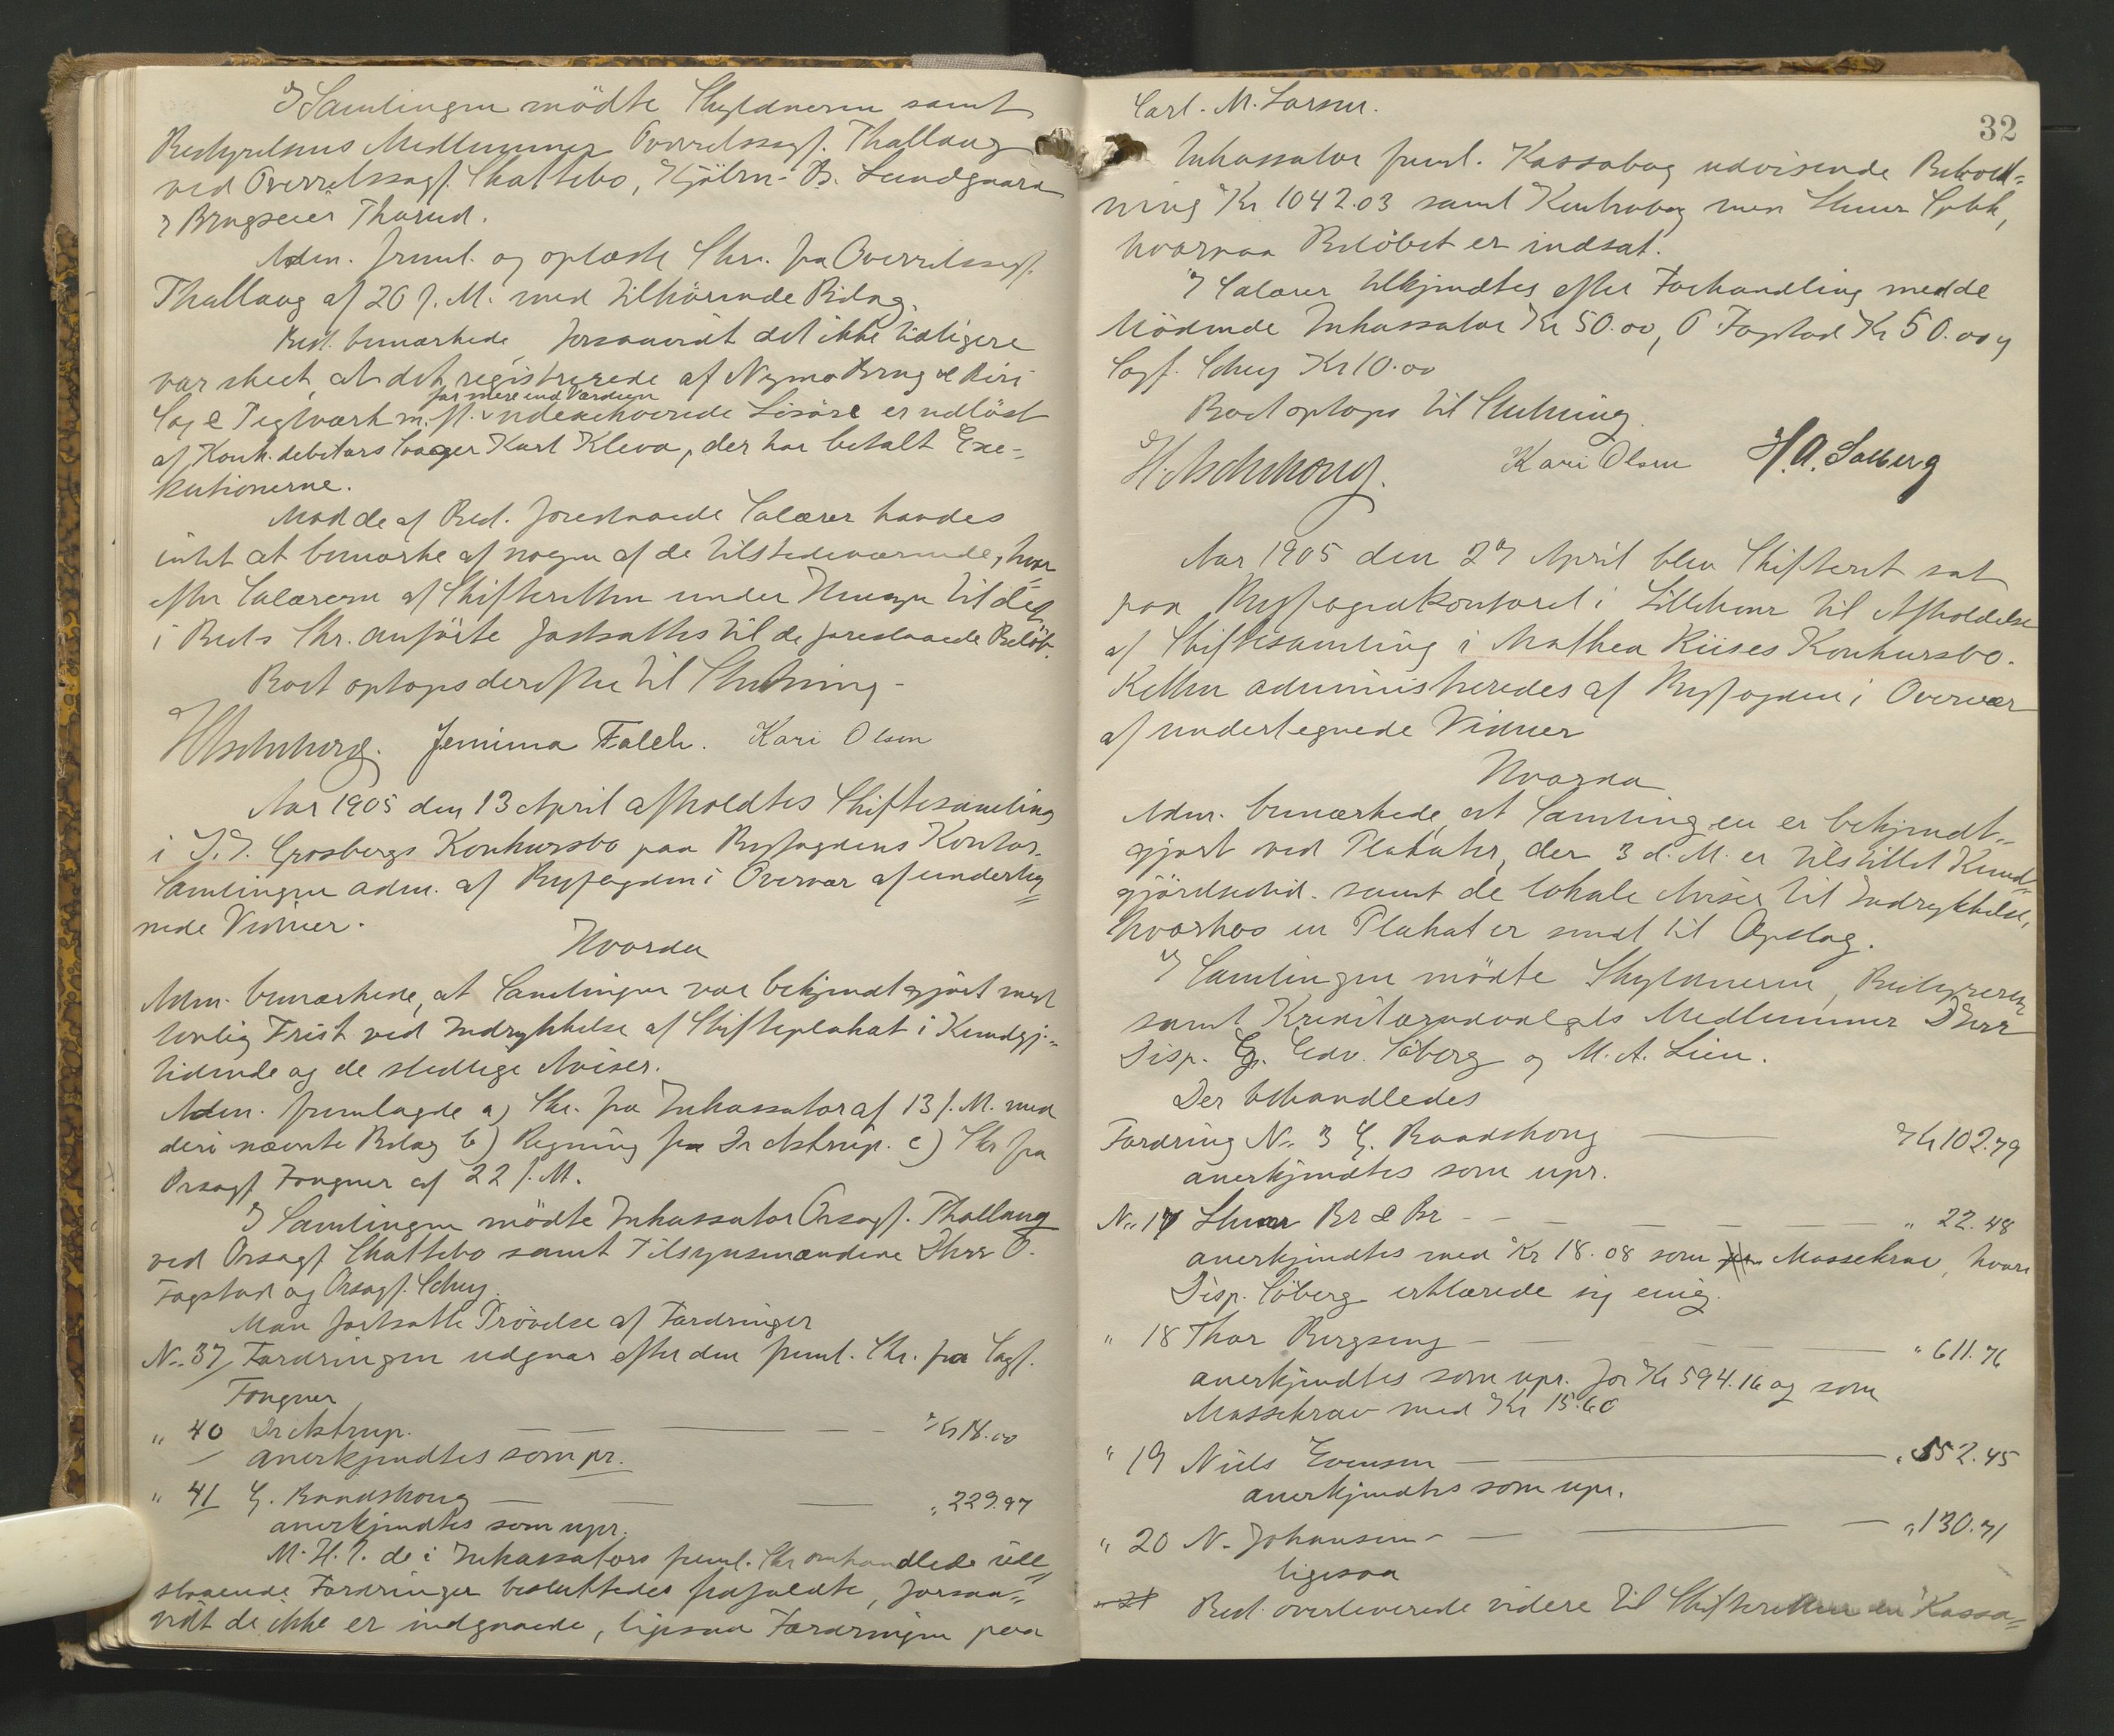 I Samlingen mødte Skyldneren samt
Bestyrelsens Medlemmer Overretssagf. Thallaug
ved Overretssagf. Skattebo, Kjøbm. B. Lundgaard
& Brugseier Thorud.
Adm. freml. og oplæste Skr. fra Overretssagf.
Thallaug af 20 f. M. med tilhørende Bilag.
Best. bemærkede, forsaavidt det ikke tidligere
var skeet, at det registrerede af Nymo Brug & Biri
Sag & Teglværk m. fl. for mere end Værdien udexekverede Løsøre er udløst
af Konk.debitors Svoger Karl Kleva, der har betalt Exe-
kutionerne.
Mod de af Best. foreslaaede Salærer havdes
intet at bemærke af nogen af de tilstedeværende, hvor
efter Salærerne af Skifteretten under Hensyn til det
i Best.s Skr. anførte fastsattes til de foreslaaede Beløb.
Boet optoges derefter til Slutning.
Jemima Falch. Kari Olsen
Aar 1905 den 13 April afholdtes Skiftesamling
i Grosbergs Konkursbo paa Byfogdens Kontor.
Samlingen adm. af Byfogden i Overvær af underteg
nede Vidner.
Hvorda
Adm. bemærkede, at Samlingen var bekjendtgjort med
lovlig Frist ved Indrykkelse af Skifteplakat i Kundgj.-
tidende og de stedlige Aviser.
Adm. fremlagde a) Skr. fra Inkassator af 13 f. M. med
deri nævnte Bilag b) Regning fra Dr Astrup. c) Skr fra
Orsagf Fougner af 22 f. M.
I Samlingen mødte Inkassator Orsagf. Thallaug
ved Orsagf Skattebo samt Tilsynsmændene Dhrr O.
Fagstad og Orsagf.
Man fortsatte Prøvelse af Fordringer
No. 37, Fordringen udgaar efter den freml. Skr. fra Sagf.
Fougner
" 40 Dr Astrup. Kr 18.00
anerkjendtes som pr.
" 41 G. Raadshoug " 229.97
anerkjendtes som upr.
M. H. t. de i Inkassators freml. Skr omhandlede ude
staaende Fordringer besluttedes frafaldte, forsaa-
vidt de ikke er indgaaede, ligesaa Fordringen paa
32
Carl. M. Larsen.
Inkassator freml. Kassabog udvisende Behold-
ning Kr 1042.03 samt Kontrabog med Lhmr Spbk,
hvorpaa Beløbet er indsat.
I Salærer tilkjendtes efter Forhandling med de
Mødende Inkassator Kr 50.00, O Fagstad Kr 50.00 og
Sagf. Kr 10.00
Boet optoges til Slutning
Kari Olsen H. A. Solberg
Aar 1905 den 27 April blev Skifteret sat
paa Byfogedkontoret i Lillehmr til Afholdelse
af Skiftesamling i Mathea Riises Konkursbo.
Retten administreredes af Byfogden i Overvær
af undertegnede Vidner
Hvorda
Adm. bemærkede, at Samlingen er bekjendt-
gjort ved Plakater, der 3 d. M. er tilstillet Kund-
gjørelsestid. samt de lokale Aviser til Indrykkelse,
hvorhos en Plakat er sendt til Opslag.
I Samlingen mødte Skyldneren, Bestyreren
samt Kreditorudvalgets Medlemmer Dhrr
Disp. Edv. Søberg og M. A. Lien.
Der behandledes
Fordring No. 3 G. Raadshoug Kr 102.79
anerkjendtes som upr.
No. 17 Lhmr Br & Br " 22.48
anerkjendtes med Kr 18.08 som Massekrav, hvori
Disp. Søberg erklærede sig enig.
" 18 Thor Bergseng " 611.76
anerkjendtes som upr. for Kr 594.16 og som
Massekrav med Kr 15.60
" 19 Niels Evensen " 552.45
anerkjendtes som upr.
" 20 N. Johansen " 130.71
ligesaa
" 21 Best. overleverede videre til Skifteretten en Kassa-